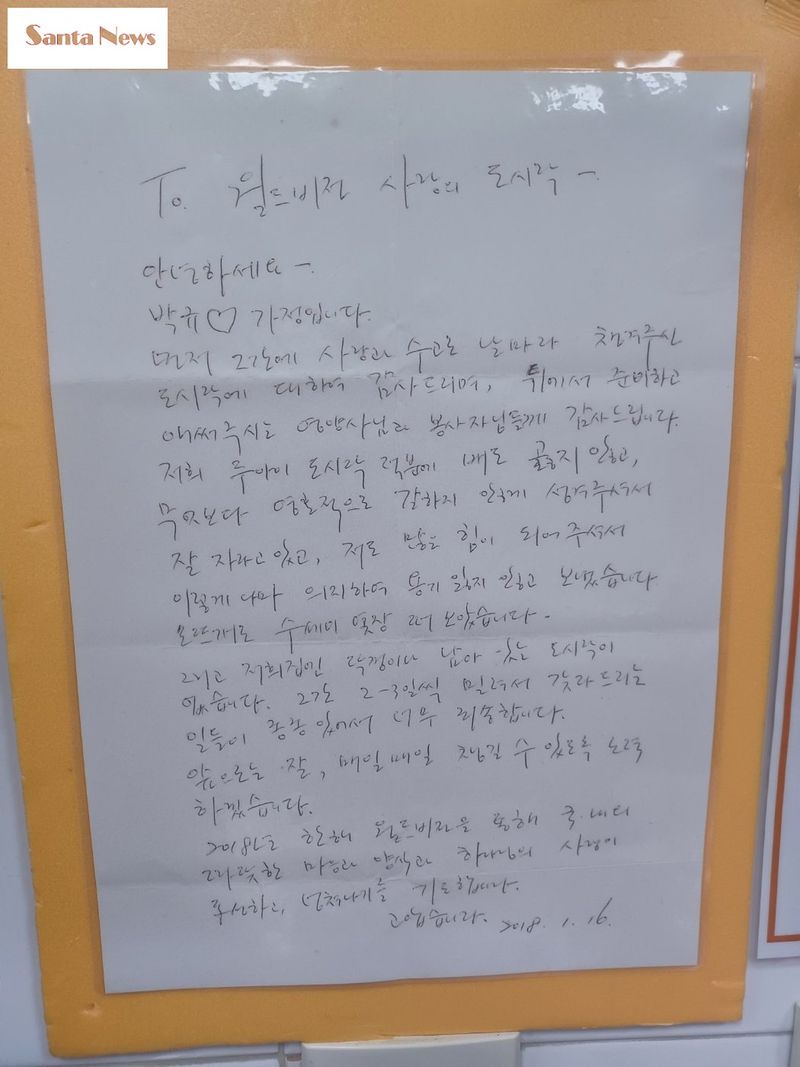 Santa News
To. 월드비전 사랑의 도시락 ~.
안녕하세요 ~.
박규♡ 가정입니다.
먼저 그간에 사랑과 수고로 날마다 챙겨주신
도시락에 대하여 감사드리며, 뒤에서 준비하고
애써주시는 영양사님과 봉사자님들께 감사드립니다.
저희 두아이 도시락 덕분에 배도 곯지 않고,
무엇보다 영혼적으로 갈하지 않게 섬겨주셔서
잘 자라고 있고, 저도 많은 힘이 되어 주셔서
이렇게나마 의지하여 용기 잃지 않고 보냈습니다
모뜨개로 수세미 몇장 떠 보았습니다.
그리고 저희집엔 남아 있는 도시락이
없습니다. 2-3일씩 밀려서 갖다드리는
일들이 종종 있어서 너무 죄송합니다.
앞으로는 잘, 매일매일 챙길 수 있도록 노력
하겠습니다.
2018년도 한해 월드비전을 통해 국·내외
따뜻한 마음과 양식과 하나님의 사랑이
풍성하고, 넘쳐나기를 기도합니다.
고맙습니다. 2018. 1. 16.